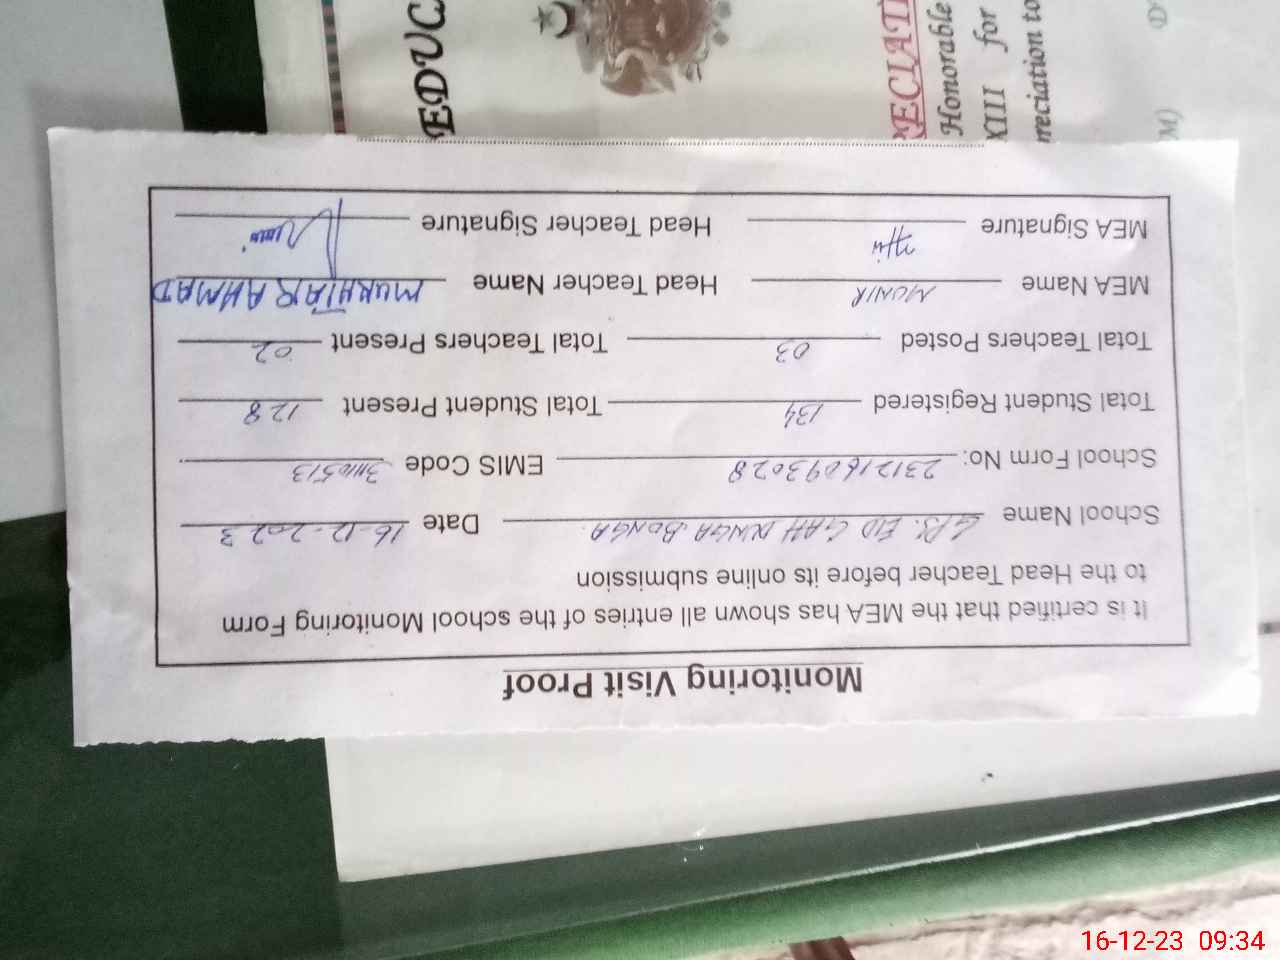 Monitoring Visit Proof
It is certified that the MEA has shown all entries of the school Monitoring Form
to the Head Teacher before its online submission
School Name G.P.S. EID GAH DUNGA BONGA. Date 16-12-2023
School Form No: 231216093028 EMIS Code 31110513
Total Student Registered 134 Total Student Present 128
Total Teachers Posted 03 Total Teachers Present 02
MEA Name MUNIR Head Teacher Name MUKHTAR AHMAD
MEA Signature Head Teacher Signature
EDUC
RECIATI
Honorable
XIII for
reciation to
M)
16-12-23 09:34